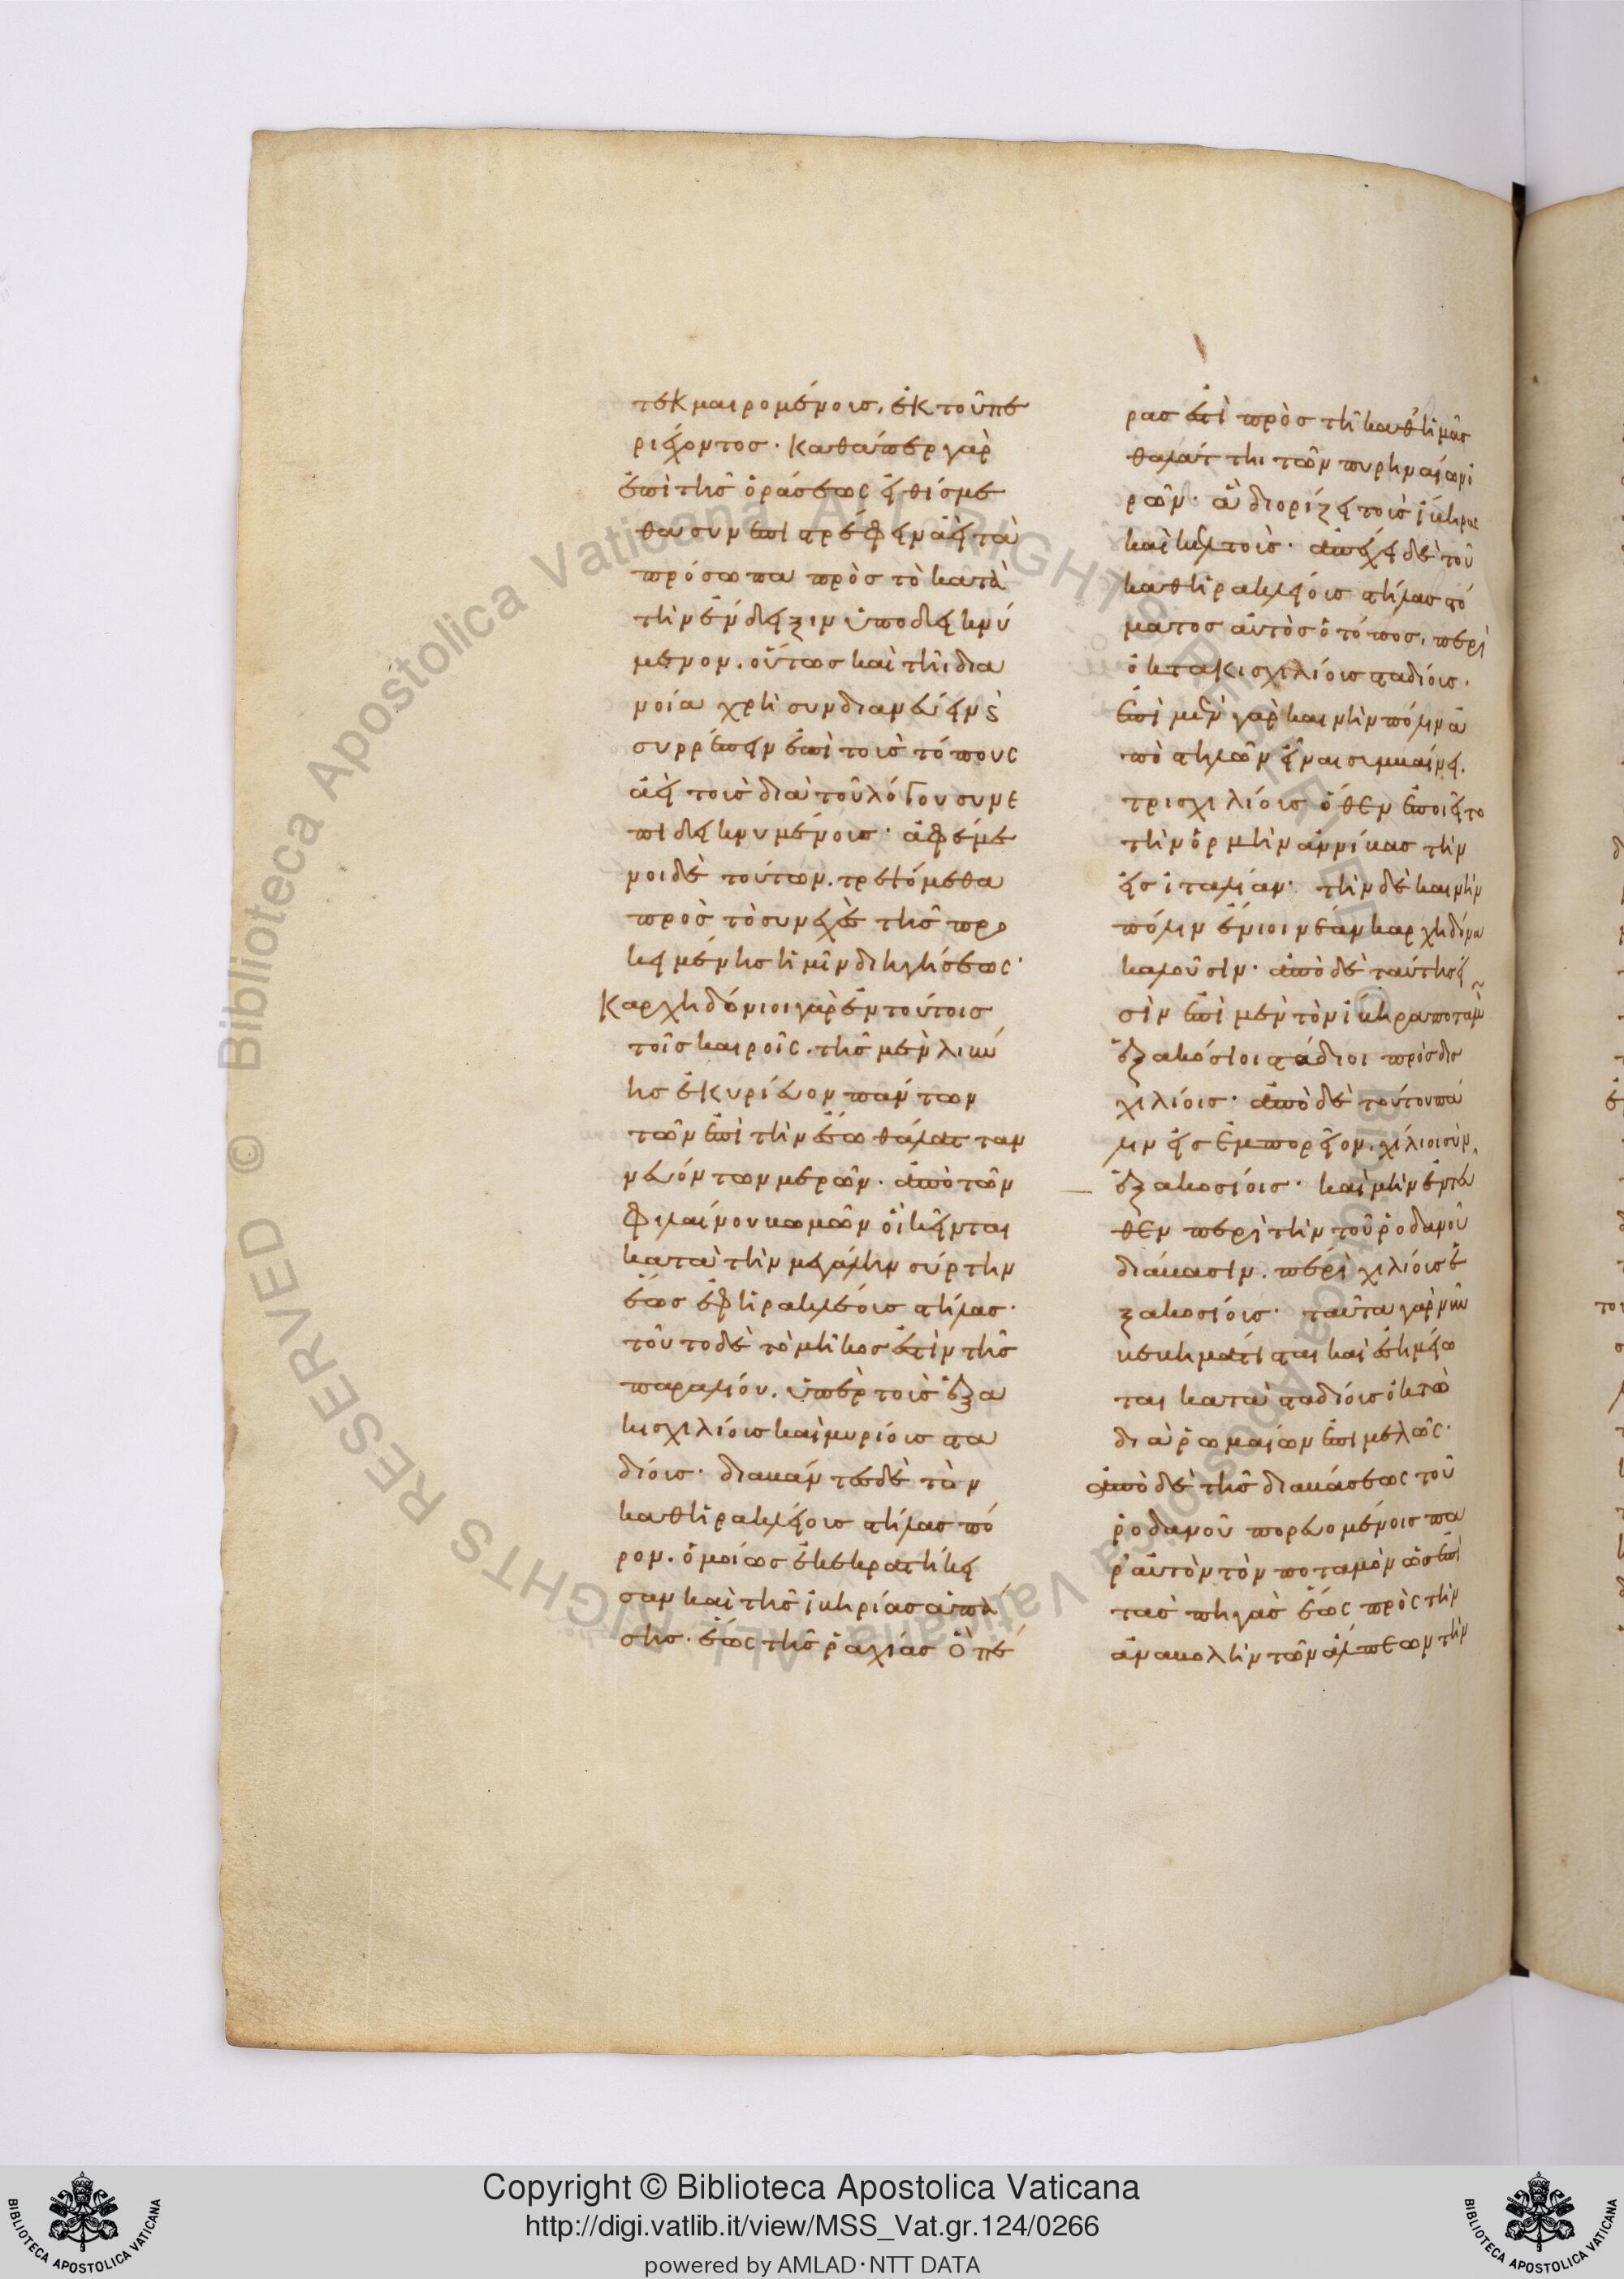 τεκμαιρομένοισ, ἐκ τοῦ πε
ριέχοντος· καθάπερ γὰρ
ἐπὶ τῆσ ὁράσεως εἰθίσμε
θα συνεπιστρέφειν ἀεὶ τὰ
πρόσωπα πρὸσ τὸ κατὰ
τὴν ἔνδειξιν ὑποδεικνύ
μενον. οὕτωσ καὶ τῆι δια
νοία χρὴ συνδιανεύειν καὶ
συρρέπειν ἐπὶ τοὺσ τόπους
ἀεὶ τοὺσ διὰ τοῦ λόγου συνε
πιδεικνυμένουσ· ἀφέμε
νοι δὲ τούτων. τρεψόμεθα
πρὸσ τὸ συνεχὲσ τῆσ προ
κειμένησ ἡμῖν διηγήσεως·
Καρχηδόνιοι γὰρ ἐν τούτοισ
τοῖσ καιροῖς. τῆσ μὲν λιβύ
ησ ἐκυρίευον πάντων
τῶν ἐπὶ τὴν ἔσω θάλατταν
νευόντων μερῶν. ἀπὸ τῶν
φιλαίνου βωμῶν οἳ κεῖνται
κατὰ τὴν μεγάλην σύρτην
ἕωσ ἐφ ἡρακλέουσ στήλασ·
τοῦτο δὲ τὸ μῆκοσ ἐστὶν τῆσ
παραλίου. ὑπὲρ τοὺσ ἑξα
κισχιλίουσ καὶ μυρίουσ στα
δίουσ· διαβάντεσ δὲ τὸν
καθ ἡρακλείουσ στήλασ πό
ρον. ὁμοίωσ ἐκεκρατήκει
σαν καὶ τῆσ ἰβηρίασ ἁπά
σησ. ἕως τῆσ ῥαχίασ ὃ πέ
ρασ ἐστὶ πρὸσ τῆ καθ ἡμᾶσ
θαλάττηι τῶν πυρηναίων ὀ
ρῶν· ἃ διορίζει τοὺσ ἴβηρασ
καὶ κελτούσ· ἀπέχει δὲ τοῦ
καθ ἡρακλείουσ στήλασ στό
ματοσ αὐτὸσ ὁ τόποσ. περὶ
ὀκτακισχιλίουσ σταδίουσ.
ἐπὶ μὲν γὰρ καινὴν πόλιν ἀ
πὸ στηλῶν εἶναι συμβαίνει.
τρισχιλίουσ ὅθεν ἐποιεῖτο
τὴν ὁρμὴν ἀννίβασ τὴν
εἰσ ἰταλίαν· τὴν δὲ καινὴν
πόλιν ἔνιοι νέαν καρχηδόνα
καλοῦσιν· ἀπὸ δὲ ταύτησ εἰ
σὶν ἐπὶ μὲν τὸν ἴβηρα ποταμὸν
ἑξακόσιοι στάδιοι πρὸσ δισ
χιλίοισ· ἀπὸ δὲ τούτου πά
λιν εἰσ ἐμπορεῖον. χίλιοι σὺν
ἑξακοσίοισ· καὶ μὴν ἐντεῦ
θεν περὶ τὴν τοῦ ῥοδανοῦ
διάβασιν. περὶ χιλίουσ ἑ
ξακοσίουσ· ταῦτα γὰρ νῦν
βεβημάτισται καὶ σεσημείω
ται κατὰ σταδίουσ ὀκτὼ
διὰ ῥωμαίων ἐπιμελῶς·
ἀπὸ δὲ τῆσ διαβάσεως τοῦ
ῥοδανοῦ πορευομένοισ πα
ρ αὐτὸν τὸν ποταμὸν ὡσ ἐπὶ
τὰσ πηγὰσ ἕως πρὸς τὴν
ἀναβολὴν τῶν ἄλπεων τὴν
Copyright © Biblioteca Apostolica Vaticana
http://digi.vatlib.it/view/MSS_Vat.gr.124/0266
powered by AMLAD · NTT DATA
BIBLIOTECA APOSTOLICA VATICANA
BIBLIOTECA APOSTOLICA VATICANA
© Biblioteca Apostolica Vaticana ALL RIGHTS RESERVED